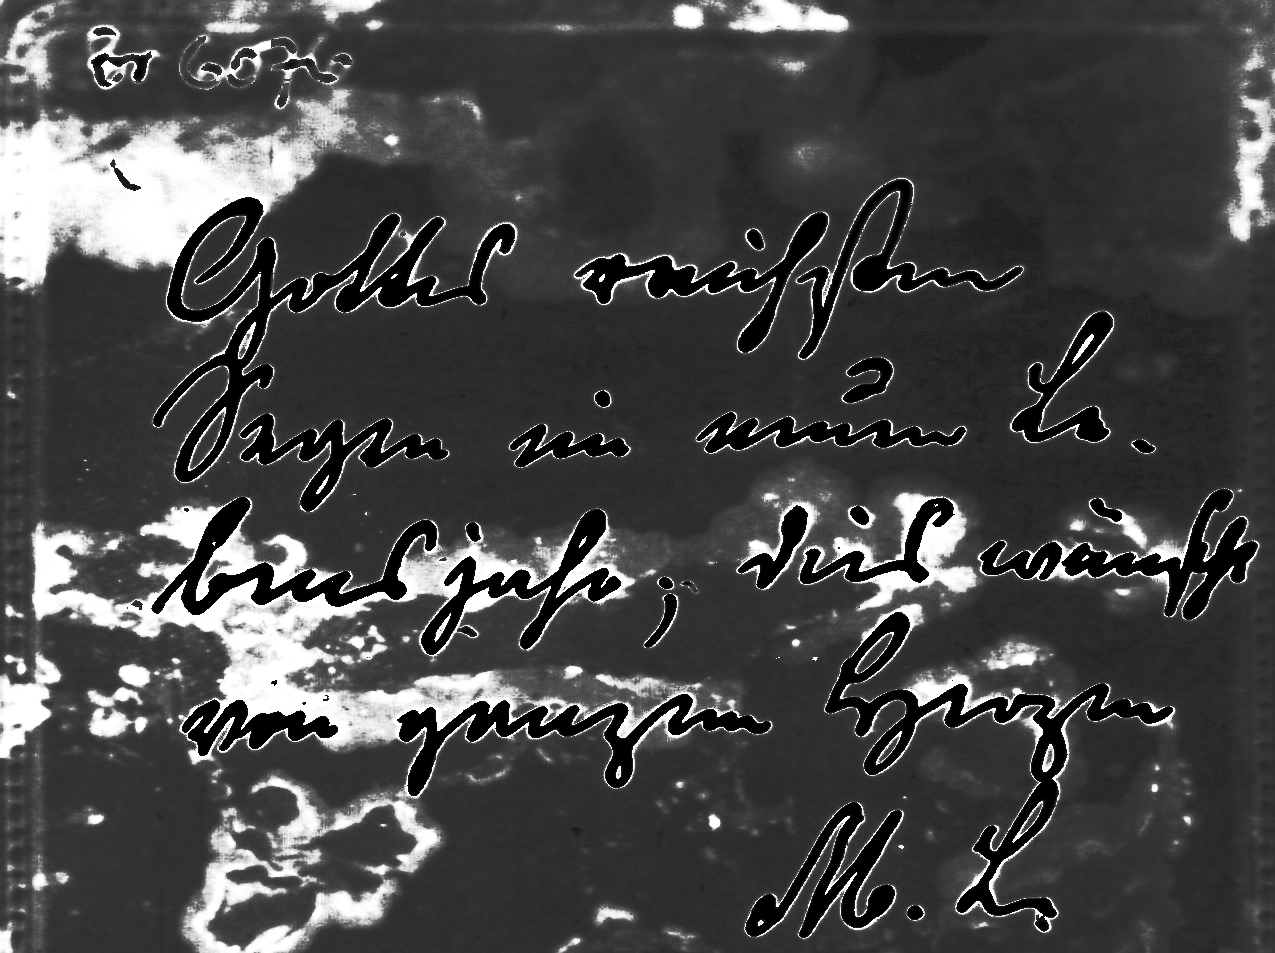 Gottes reichsten
Segen im neuen Le.
bensjahr; dies wünscht
von ganzem Herzen
M. L.